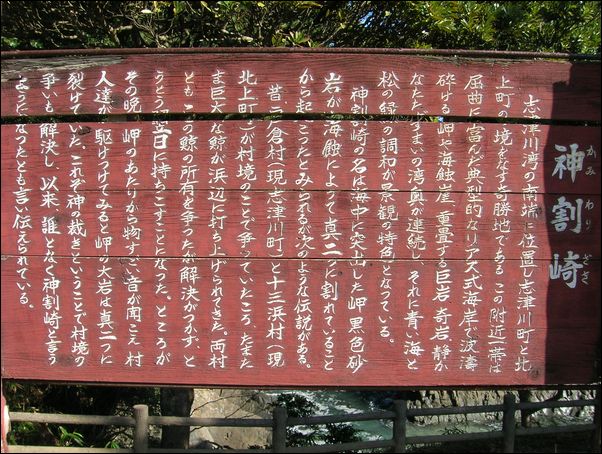 神割崎
かみ わり ざき
志津川湾の南端に位置し志津川町と北
上町の境をなす奇勝地である。この附近一帯は
屈曲に富んだ典型的なリアス式海岸で波濤
砕ける岬や海蝕崖、重畳する巨岩、奇岩、静か
なたたずまいの湾奥が連続し、それに青い海と
松の緑の調和が景観の特色となっている。
神割崎の名は海中に突出した岬(黒色砂
岩)が海蝕によって真二つに割れていること
から起こったとみられるが次のような伝説がある。
昔、戸倉村(現志津川町)と十三浜村(現
北上町)が村境のことで争っていたころ、たまた
ま巨大な鯨が浜辺に打ち上げられてきた。両村
ともこの鯨の所有を争ったが解決がつかず、と
うとう翌日に持ちこすことになった。ところが
その晩、岬のあたりから物すごい音が聞こえ村
人達が駆けつけてみると岬の大岩は真二つに
裂けていた。これぞ神の裁きということで村境の
争いも解決し、以来、誰となく神割崎と言う
ようになったとも言い伝えられている。